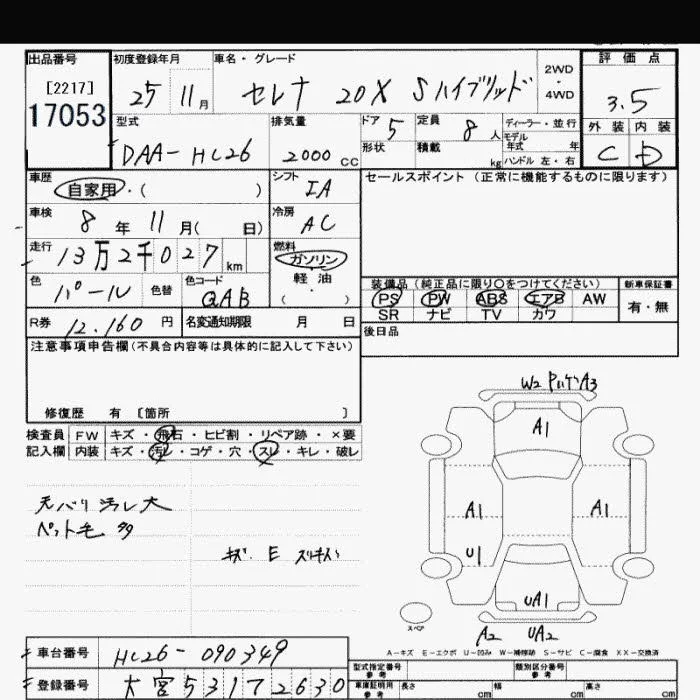 出品番号
[2217]
17053
初度登録年月
25 11月
車名・グレード
セレナ 20X Sハイブリッド
2WD
・
4WD
評価点
3.5
外装 内装
C D
型式
DAA-HC26
排気量
2000 CC
ドア 5
形状
定員 8人
積載 kg
ディーラー・並行
モデル
年式 年
ハンドル 左・右
車歴
自家用・( )
シフト
IA
セールスポイント(正常に機能するものに限ります)
車検
8年11月( 日)
冷房
AC
走行
13万2千027km
燃料
ガソリン
軽油
・
( )
色
パール
色替
色コード
QAB
装備品(純正品に限り〇をつけてください)
PS PW ABS エアB AW
SR ナビ TV カワ
新車保証書
有・無
R券 12.160円
名変通知期限 月 日
後日品
注意事項申告欄(不具合内容等は具体的に記入して下さい)
修復歴 有 [箇所 ]
検査員
記入欄
FW キズ・飛石・ヒビ割・リペア跡・×要
内装 キズ・汚レ・コゲ・穴・スレ・キレ・破レ
天バリ汚レ大
ペット毛多
キズ・E スリキズ
W2 A3
A1
A1
A1
U1
UA1
A2 UA2
スペア
A-キズ E-エクボ U-凹み W-補修跡 S-サビ C-腐食 XX-交換済
車台番号 HC26-090349
登録番号 大宮531 7 2630
型式指定番号
参考
類別区分番号
参考
車庫証明用
参考
長さ cm
幅 cm
高さ cm